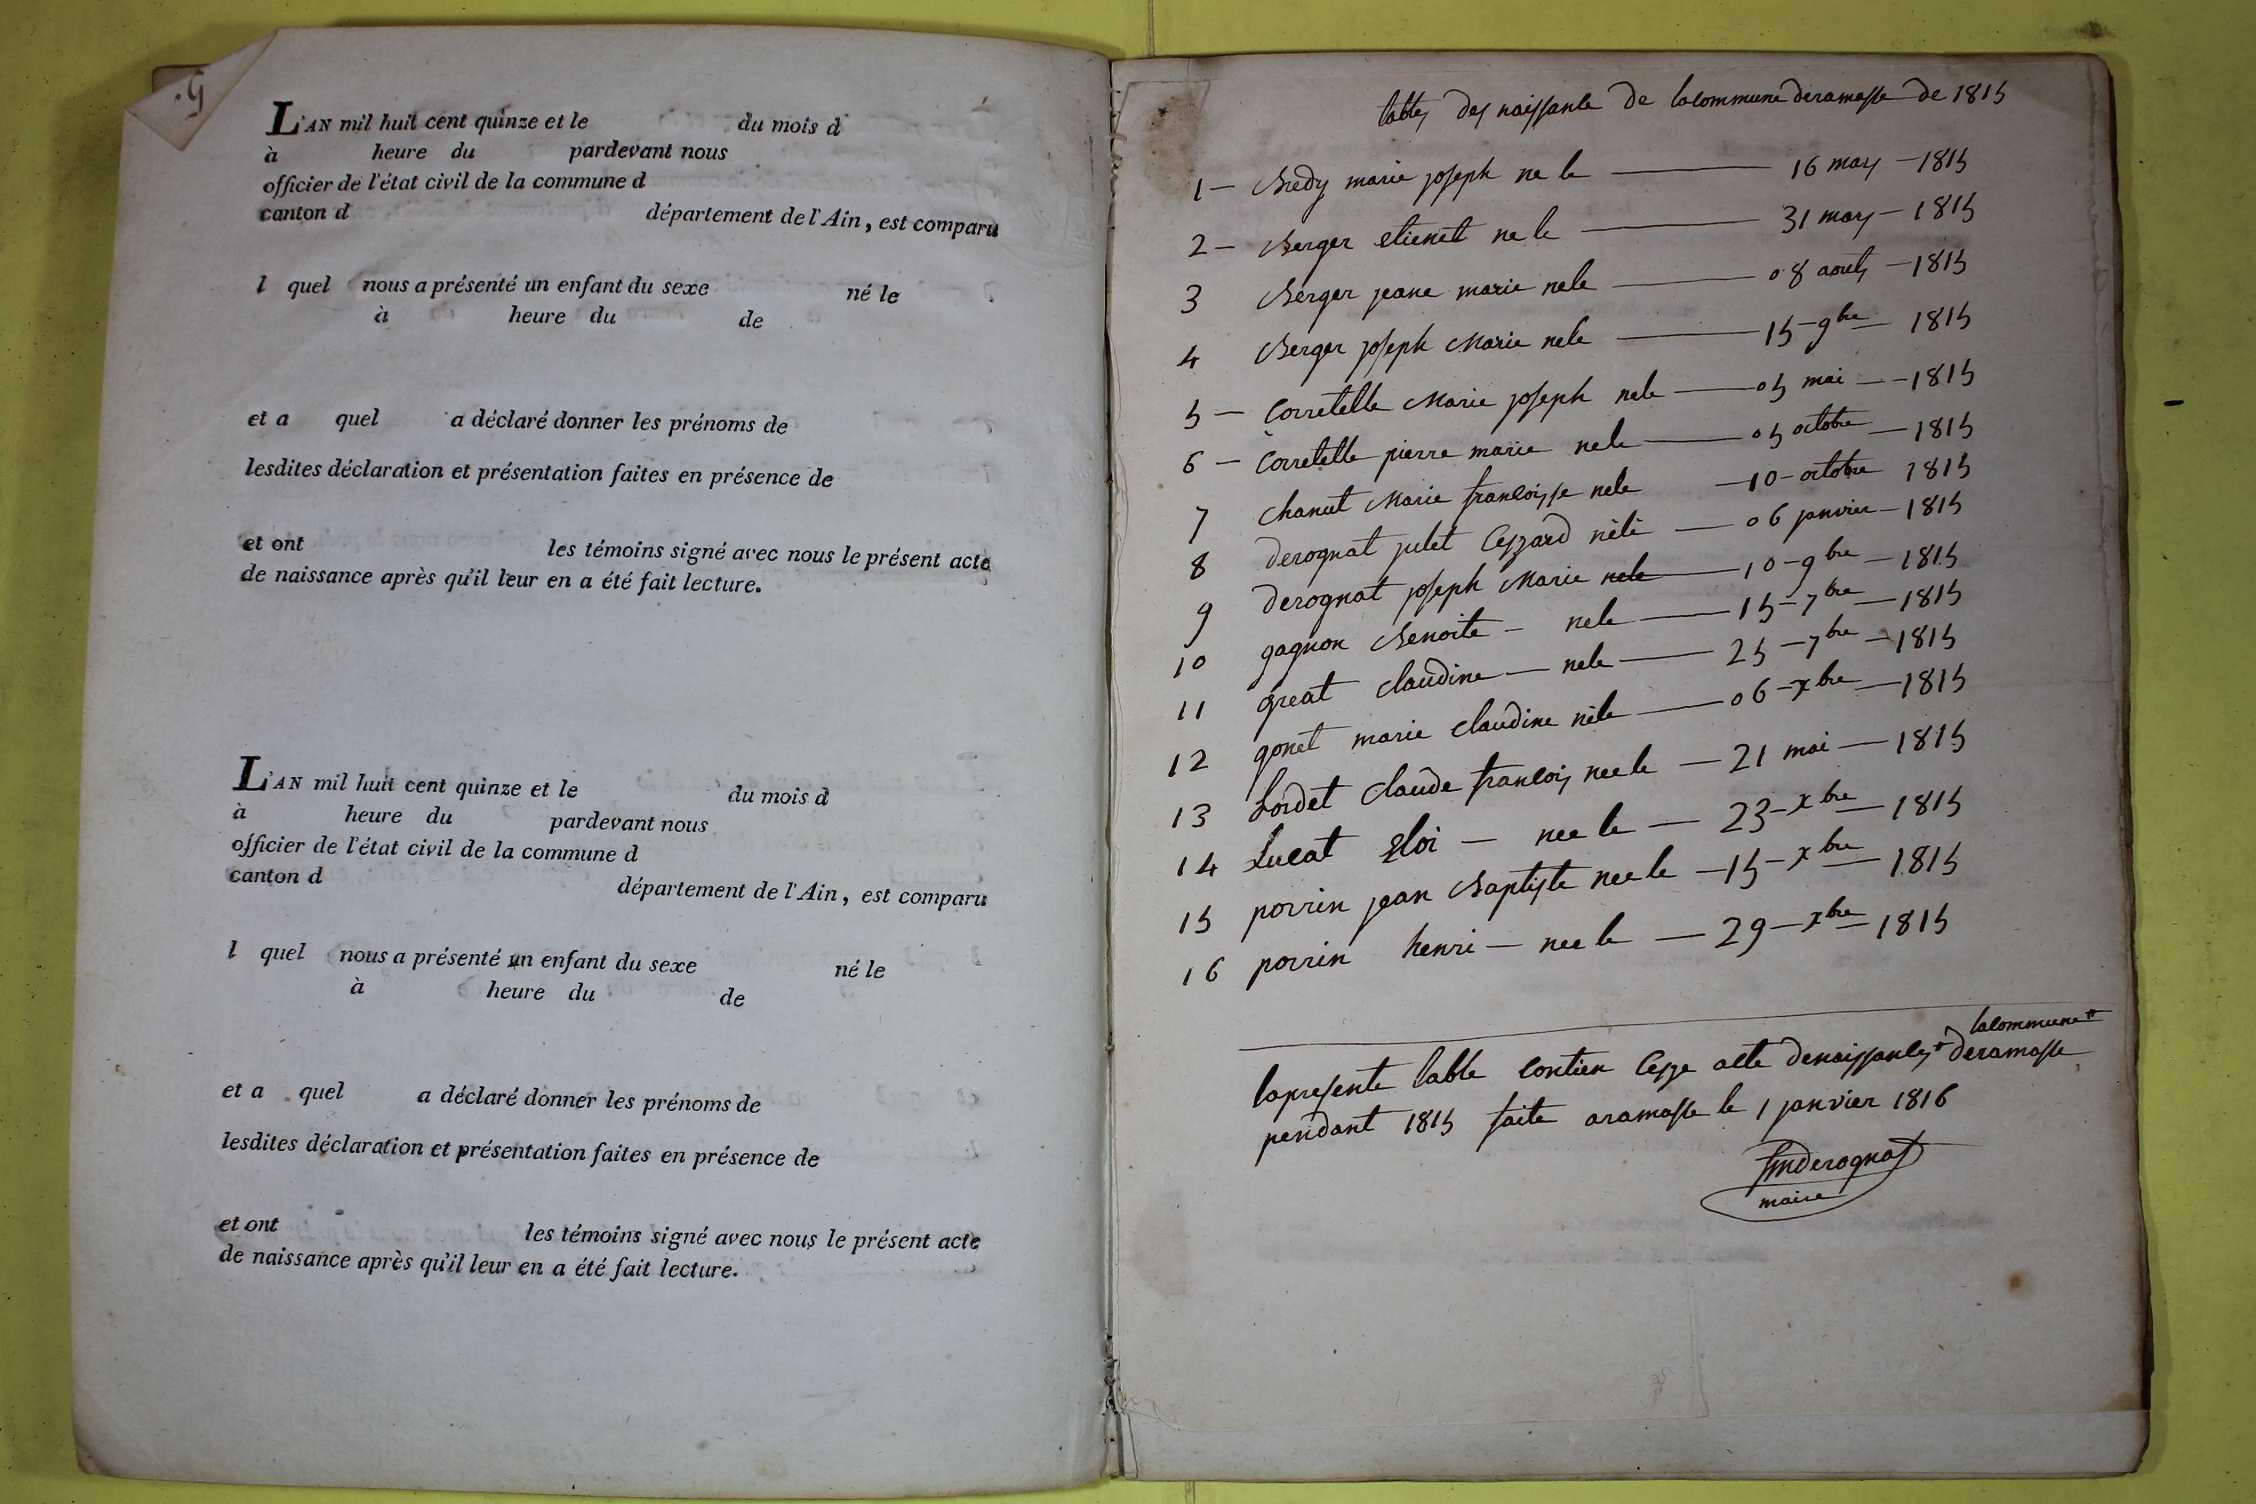 5.
L'AN mil huit cent quinze et le du mois d
à heure du pardevant nous
officier de l'état civil de la commune d
canton d département de l'Ain, est comparu
l quel nous a présenté un enfant du sexe né le
à heure du de
et a quel a déclaré donner les prénoms de
lesdites déclaration et présentation faites en présence de
et ont les témoins signé avec nous le présent acte
de naissance après qu'il leur en a été fait lecture.
L'AN mil huit cent quinze et le du mois d
à heure du pardevant nous
officier de l'état civil de la commune d
canton d département de l'Ain, est comparu
l quel nous a présenté un enfant du sexe né le
à heure du de
et a quel a déclaré donner les prénoms de
lesdites déclaration et présentation faites en présence de
et ont les témoins signé avec nous le présent acte
de naissance après qu'il leur en a été fait lecture.
tables des naissance de lacommune deramasse de 1815
1 - Bredy marie joseph ne le — 16 may - 1815
2 - Berger etienet ne le — 31 may - 1815
3 Berger jeane marie nele — 08 aouts - 1815
4 Berger joseph Marie nele — 15 - 9bre — 1815
5 - Corretelle Marie joseph nele — 05 mai - 1815
6 - Corretelle pierre marie nele — 05 octobre — 1815
7 chanut Marie francoisse nele - 10 - octobre 1815
8 derognat julet Cezzard nèlè — 06 janvier - 1815
9 derognat joseph Marie nele — 10 - 9bre - 1815
10 gagnon Benoite - nele — 15 - 7bre — 1815
11 great claudine — nele — 25 - 7bre - 1815
12 gonet marie claudine nèle — 06 - xbre — 1815
13 Lordet claude francois neele — 21 mai — 1815
14 Lucat Eloi — nee le — 23 - xbre — 1815
15 porrin jean Baptiste neele - 15 - xbre — 1815
16 porrin henri — nee le — 29 - xbre — 1815
lacommune *
lapresente table contien Cezze acte denaissances * deramasse
pendant 1815 faite aramasse le 1 janvier 1816
derognat
maire